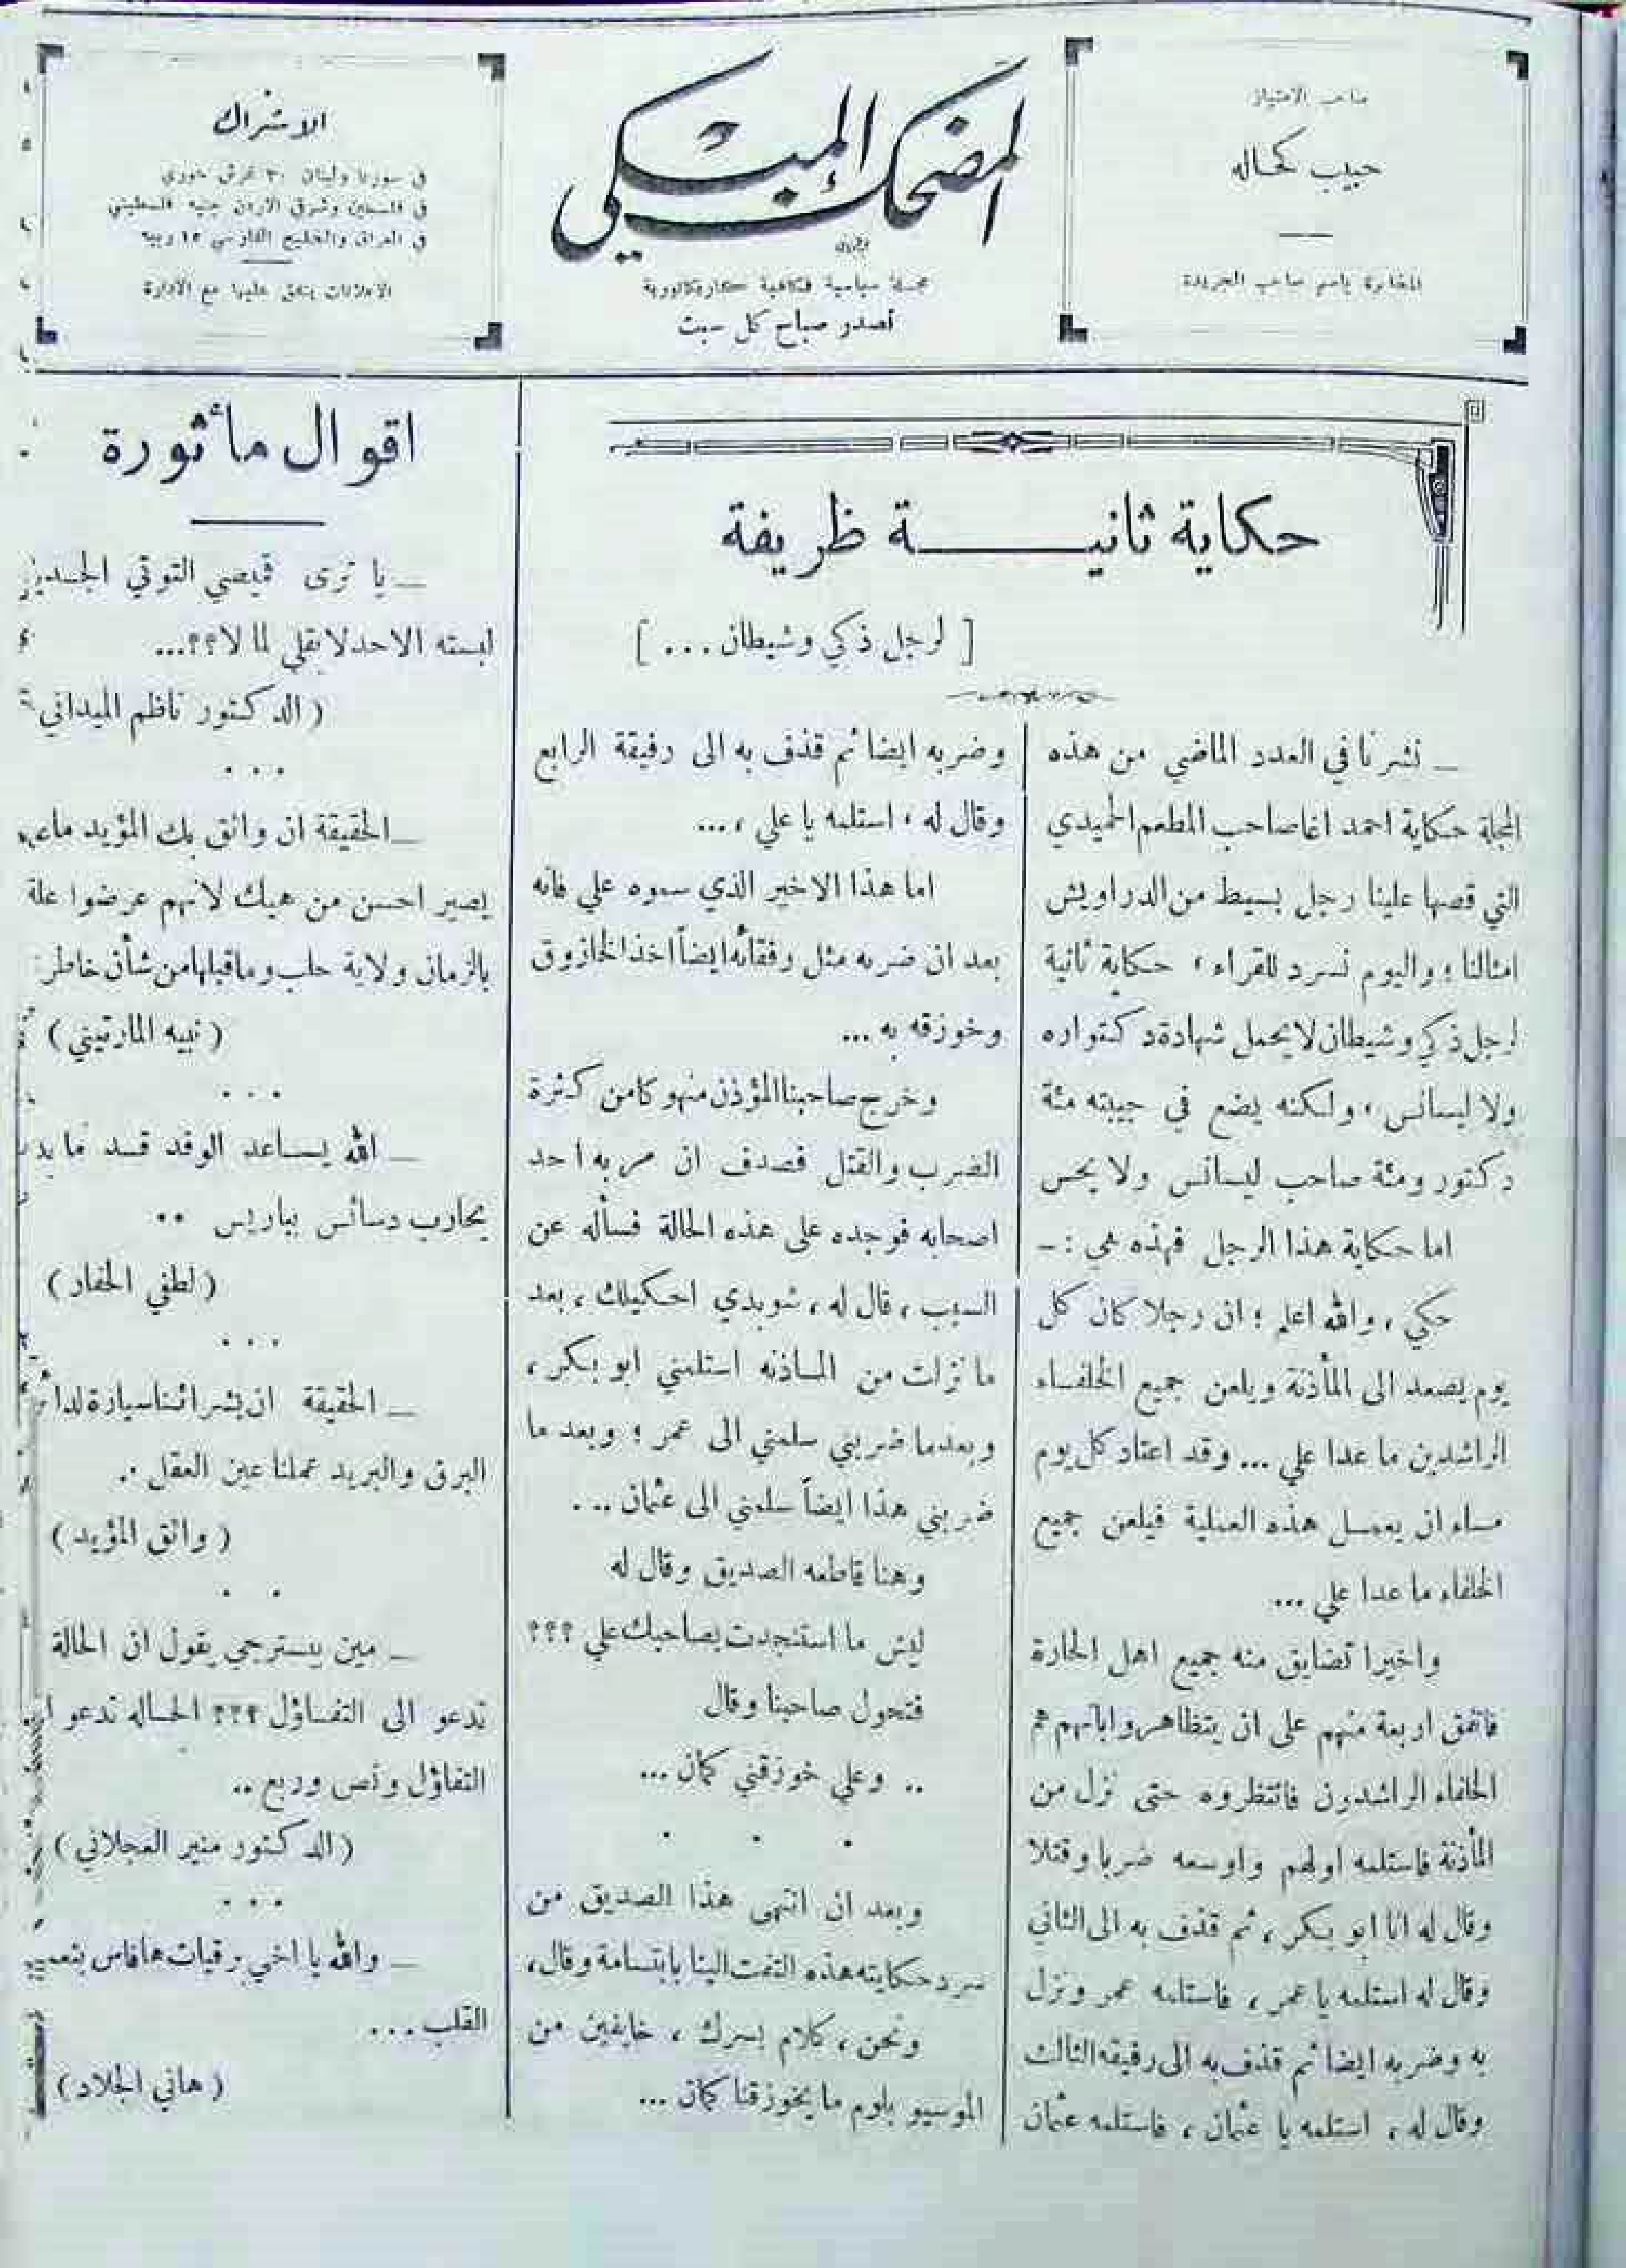 صاحب الامتياز
حبيب كحاله
المخابرة باسم صاحب الجريدة
المضحك المبكي
مجلة سياسية فكاهية كاريكاتورية
تصدر صباح كل سبت
الاشتراك
في سوريا ولبنان ٣٠ غرش سوري
في فلسطين وشرق الاردن جنيه فلسطيني
في العراق والخليج الفارسي ١٥ ربية
الاعلانات يتفق عليها مع الادارة
حكاية ثانيـــــة ظريفة
[ لرجل ذكي وشيطان ... ]
ــ نشرنا في العدد الماضي من هذه
المجلة حكاية احمد اغا صاحب المطعم الحميدي
التي قصها علينا رجل بسيط من الدراويش
امثالنا ؛ واليوم نسرد للقراء ، حكاية ثانية
لرجل ذكي وشيطان لا يحمل شهادة دكتواره
ولا ليسانس ، ولكنه يضع في جيبته مئة
دكتور ومئة صاحب ليسانس ولا يحس
اما حكاية هذا الرجل فهذه هي : ـ
حكي ، والله اعلم ؛ ان رجلا كان كل
يوم يصعد الى المأذنة ويلعن جميع الخلفاء
الراشدين ما عدا علي ... وقد اعتاد كل يوم
مساء ان يعمل هذه العملية فيلعن جميع
الخلفاء ما عدا علي ...
واخيرا تضايق منه جميع اهل الحارة
فاتفق اربعة منهم على ان يتظاهروا بانهم هم
الخلفاء الراشدون فانتظروه حتى نزل من
المأذنة فاستلمه اولهم واوسعه ضربا وقتلا
وقال له انا ابو بكر ، ثم قذف به الى الثاني
وقال له استلمه يا عمر ، فاستلمه عمر ونزل
به وضربه ايضا ثم قذف به الى رفيقه الثالث
وقال له ، استلمه يا عثمان ، فاستلمه عثمان
وضربه ايضا ثم قذف به الى رفيقة الرابع
وقال له ، استلمه يا علي ، ...
اما هذا الاخير الذي سموه علي فانه
بعد ان ضربه مثل رفقائه ايضاً اخذ الخازوق
وخوزقه به ...
وخرج صاحبنا المؤذن منهوكا من كثرة
الضرب والقتل فصدف ان مر به احد
اصحابه فوجده على هذه الحالة فسأله عن
السبب ، قال له ، شو بدي احكيلك ، بعد
ما نزلت من المـاذنه استلمني ابو بكر ،
وبعدما ضربني سلمني الى عمر ؛ وبعد ما
ضربني هذا ايضاً سلمني الى عثمان ...
وهنا قاطعه الصديق وقال له
ليش ما استنجدت بصاحبك علي ؟؟؟
فتحول صاحبنا وقال
.. وعلي خوزقني كمان ...
. . .
وبعد ان انتهى هذا الصديق من
سرد حكايته هذه التفت الينا بابتسامة وقال ،
ونحن ، كلام بسرك ، خايفين من
الموسيو بلوم ما يخوزقنا كمان ...
اقوال مأثورة
ــ يا ترى قميصي التوتي الجديد
لبسته الاحد لا بقلي لما لا ؟؟...
( الدكتور ناظم الميداني
. . .
ــ الحقيقة ان واثق بك المؤيد
يصير احسن من هيك لانهم عرضوا علة
بالزمان ولاية حلب وما قبلها من شأن خاطر
( نبيه المارتيني )
. . .
ــ الله يساعد الوفد قد ما
يحارب دسائس بباريس ..
( لطفي الحفار )
. . .
ــ الحقيقة ان بشرائنا سيارة
البرق والبريد عملنا عين العقل ..
( واثق المؤيد )
. .
ــ مين بيسترجي يقول ان الحالة
تدعو الى التفاؤل ؟؟؟ الحاله تدعو
التفاؤل ونص وربع ..
( الدكتور منير العجلاني )
. . .
ــ والله يا اخي برقيات هافاس
القلب ...
( هاني الجلاد )